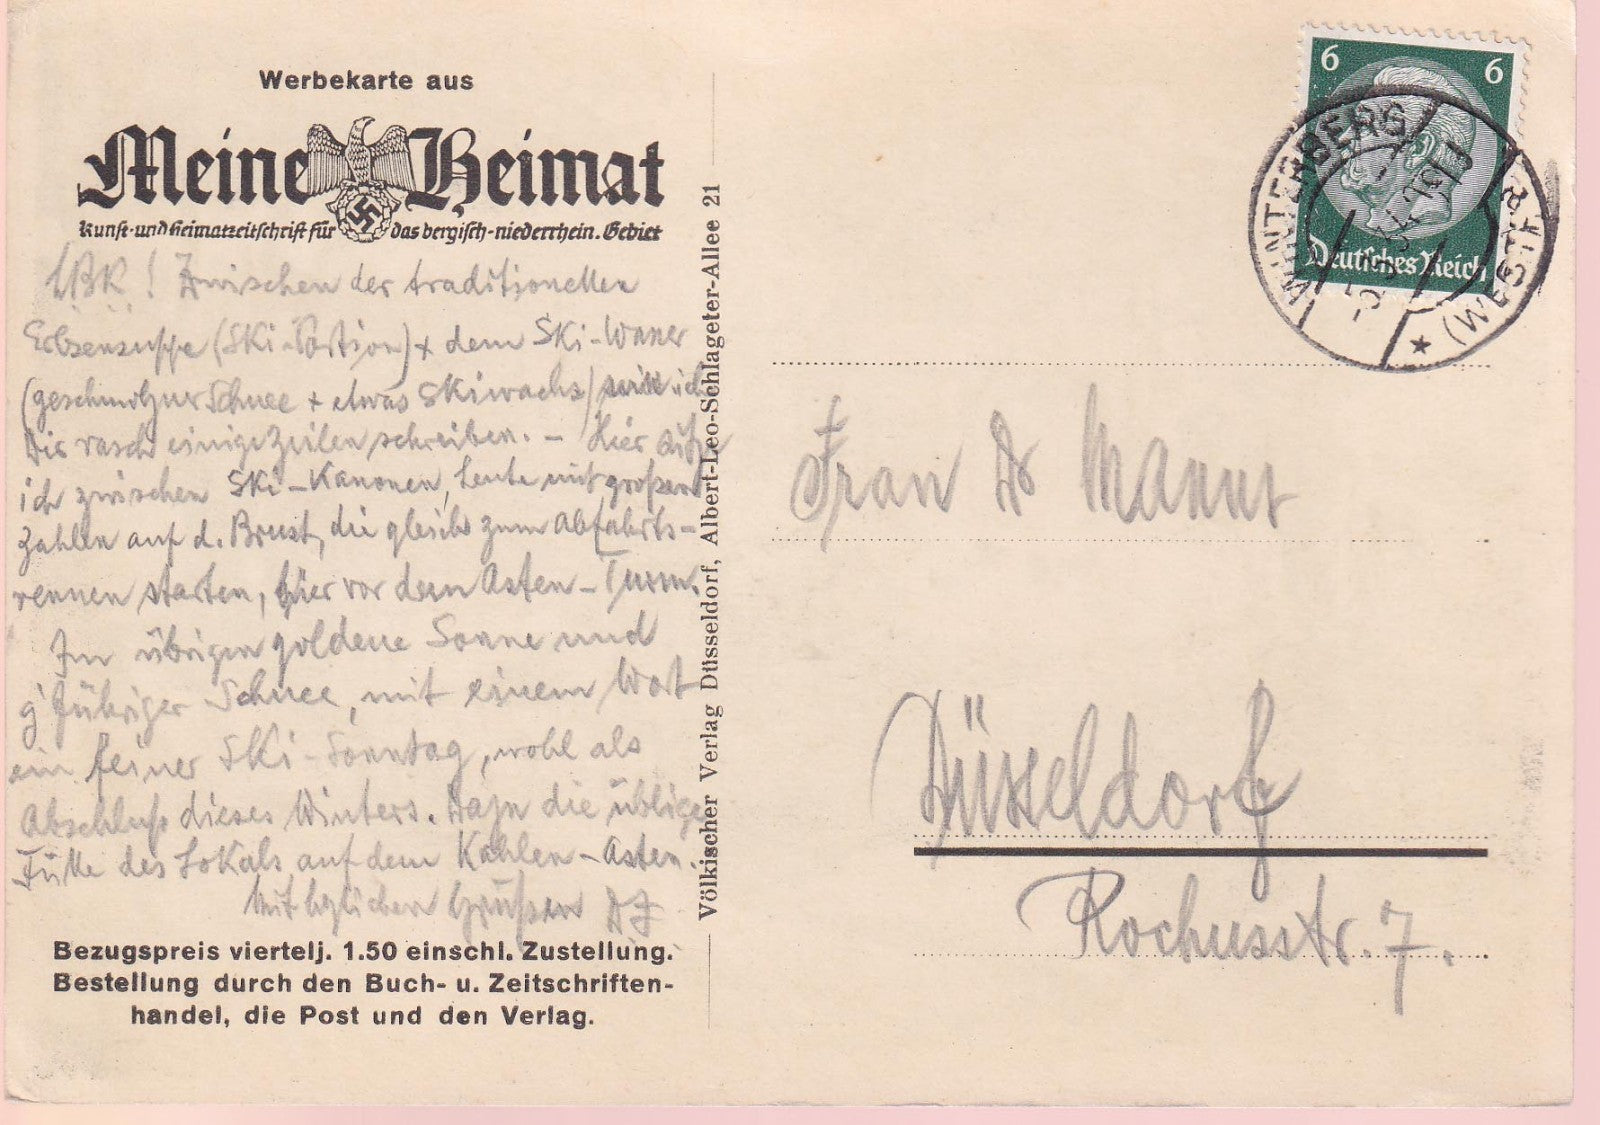 Werbekarte aus
Meine Heimat
Kunst- und Heimatzeitschrift für das bergisch-niederrhein. Gebiet
! Zwischen der traditionellen
Erbsensuppe (Ski-Portion) + dem Ski-Waner
(geschmolzner Schnee + etwas Skiwachs) will ich
Dir rasch einige Zeilen schreiben. – Hier sitze
ich zwischen Ski-Kanonen, Leute mit großen
Zahlen auf d. Brust, die gleich zum Abfahrts-
rennen starten, hier vor dem Asten-Turm.
Im übrigen goldene Sonne und
g'führiger Schnee, mit einem Wort
ein feiner Ski-Sonntag, wohl als
Abschluß dieses Winters. Dazu die übliche
Fülle des Lokals auf dem Kahlen-Asten.
Mit hzlichen Grüßen
Bezugspreis viertelj. 1.50 einschl. Zustellung.
Bestellung durch den Buch- u. Zeitschriften-
handel, die Post und den Verlag.
Völkischer Verlag Düsseldorf, Albert-Leo-Schlageter-Allee 21
6 6
Deutsches Reich
WINTERBERG
(WESTF.)
Frau Dr
Düsseldorf
Rochusstr. 7.